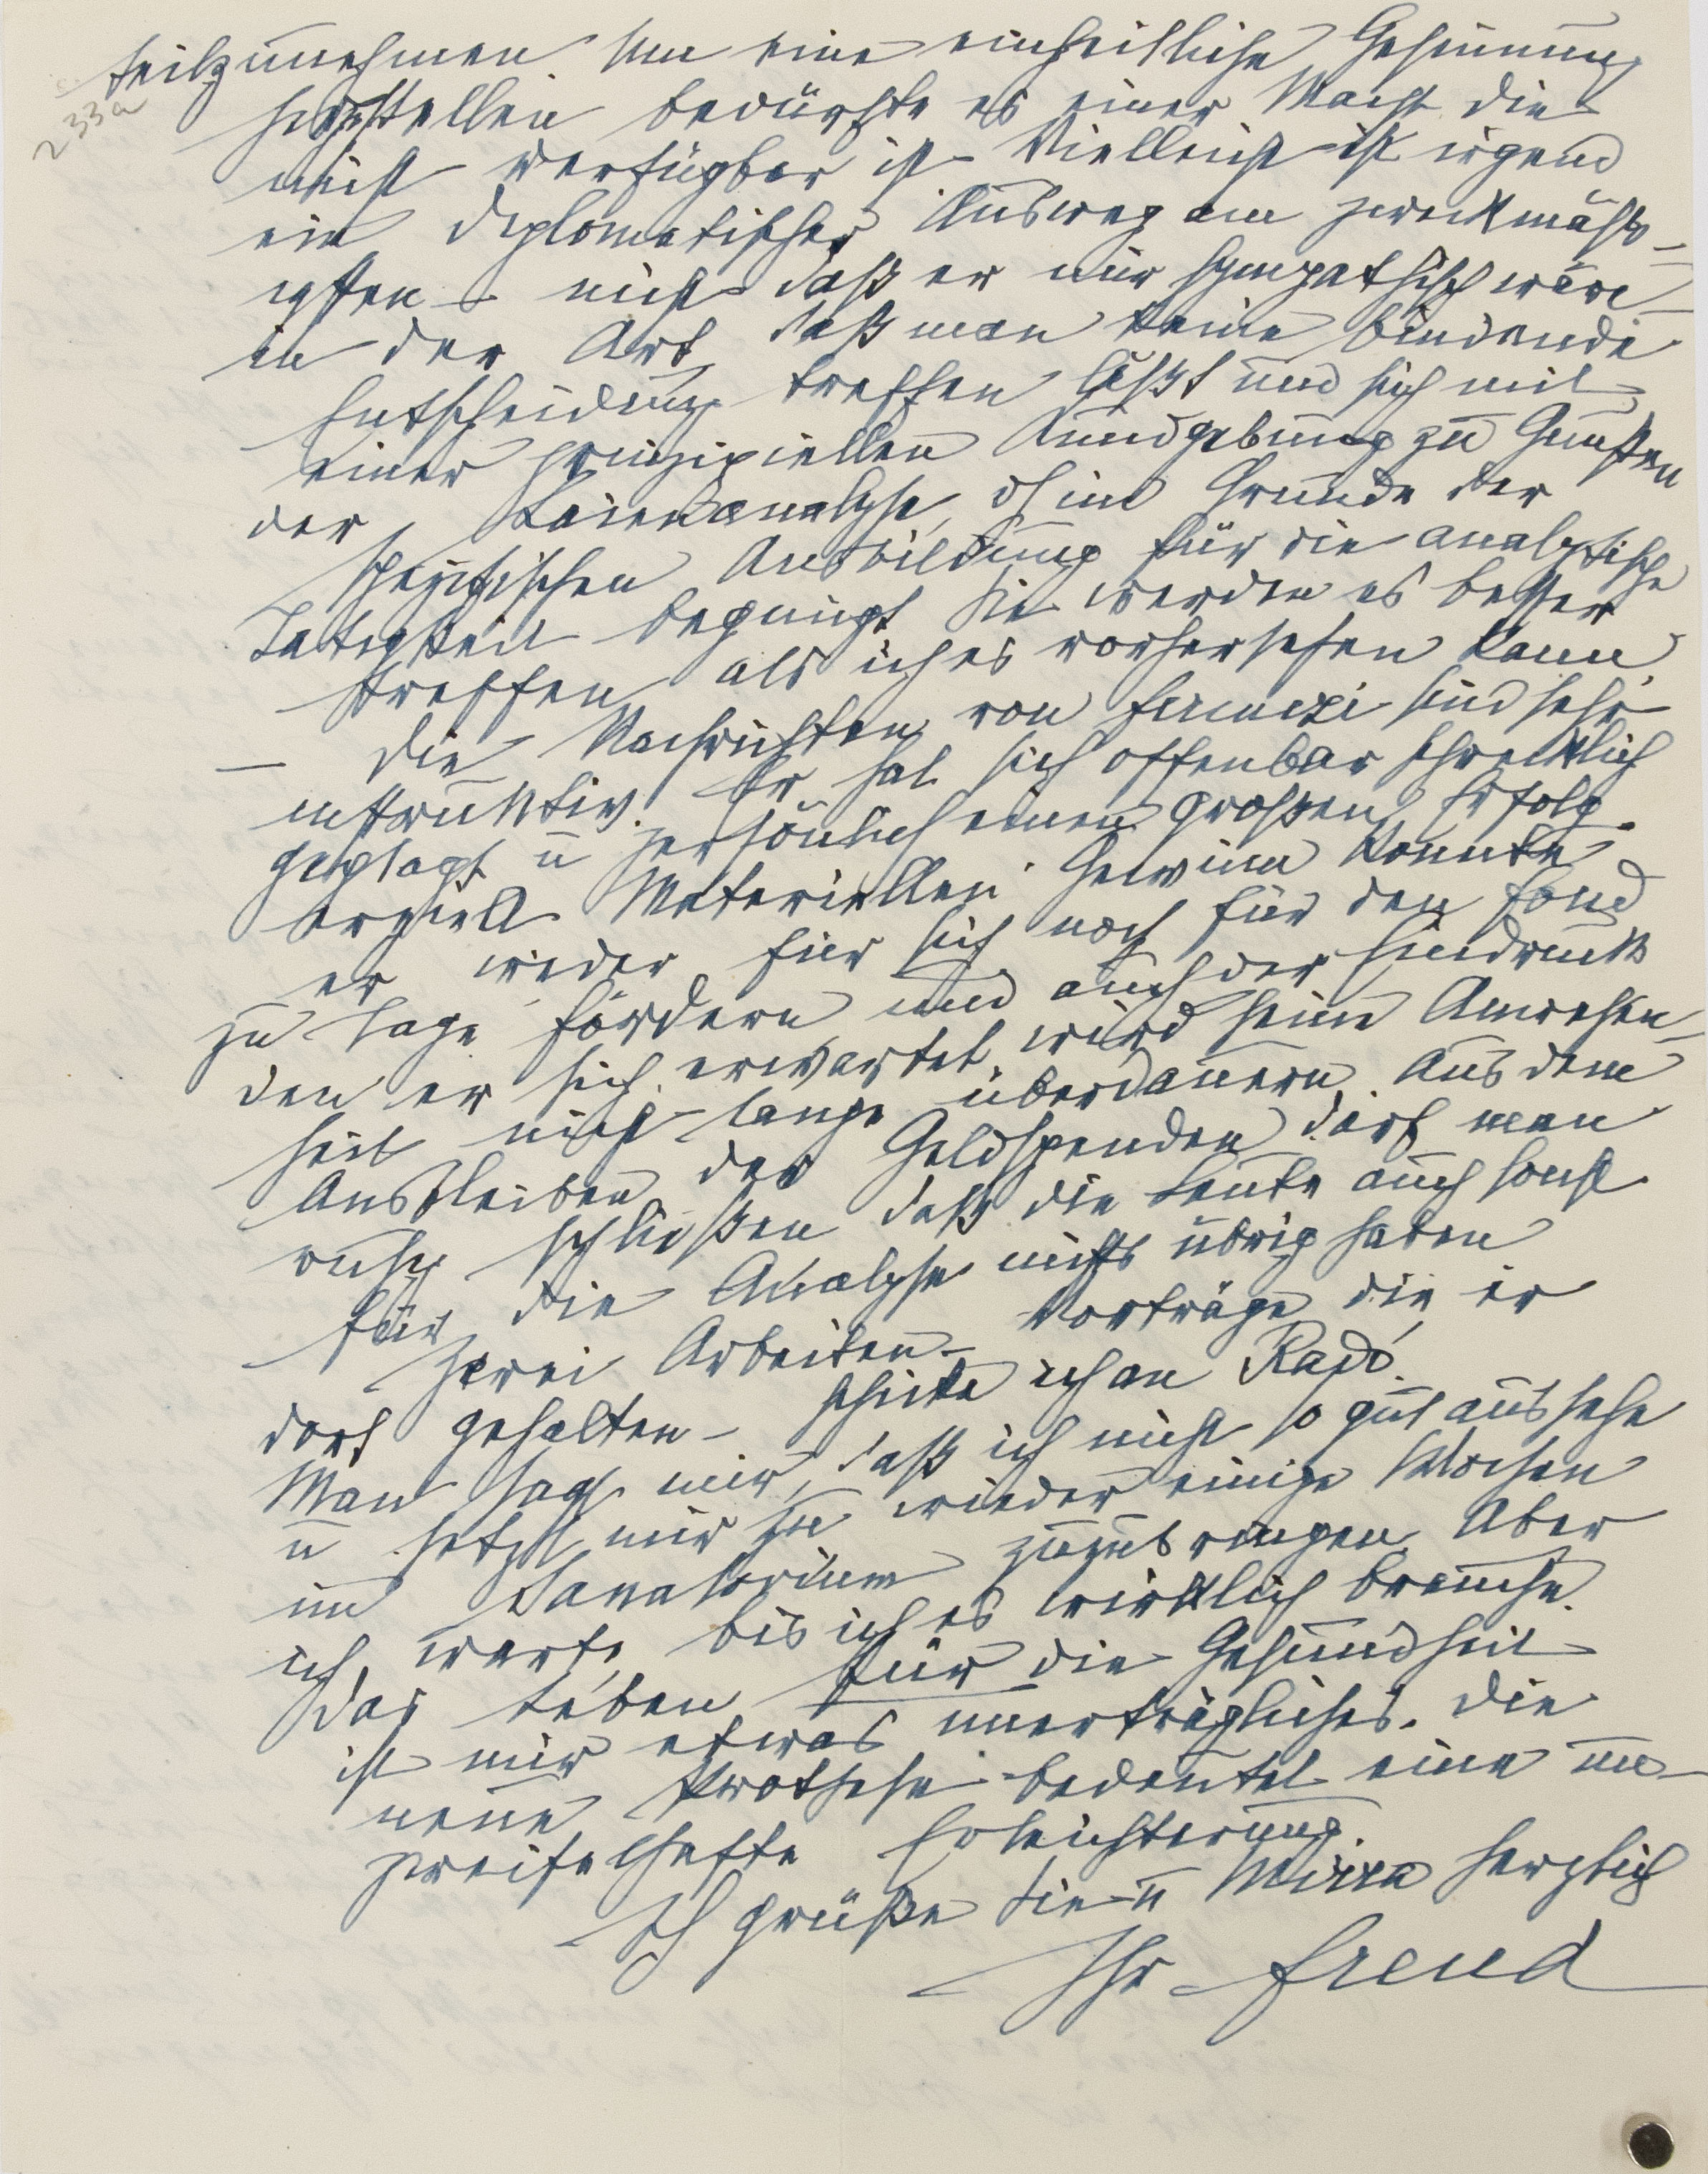 233a
teilzunehmen. Um eine einheitliche Gesinnung
herzustellen bedürfte es einer Macht die
nicht verfügbar ist. Vielleicht ist irgend
ein diplomatischer Ausweg am zweckmäßig-
sten – nicht daß er mir sympathisch wäre –
in der Art, daß man keine bindende
Entscheidung treffen läßt und sich mit
einer prinzipiellen Kundgebung zu Gunsten
der Laienanalyse, im Grunde der
spezifischen Ausbildung für die analytische
Tätigkeit begnügt. Sie werden es besser
treffen, als ich es vorhersehen kann.
– Die Nachrichten von Ferenczi sind sehr
instruktiv. Er hat sich offenbar schrecklich
geplagt u persönlich einen großen Erfolg
erzielt. Materiellen Gewinn konnte
er weder für sich noch für den Fond
zu Tage fördern und auch der Eindruck
den er sich erwartet, wird seine Anwesen-
heit nicht lange überdauern. Aus dem
Ausbleiben der Geldspenden darf man
ruhig schließen daß die Leute auch sonst
für die Analyse nichts übrig haben
Zwei Arbeiten – Vorträge, die er
dort gehalten – schicke ich an Radó.
Man sagt mir, daß ich nicht so gut aussehe
u setzt mir zu wieder einige Wochen
im Sanatorium zuzubringen. Aber
ich warte, bis ich es wirklich brauche.
Das Leben für die Gesundheit
ist mir etwas unerträgliches. Die
neue Prothese bedeutet eine un-
zweifelhafte Erleichterung.
Ich grüße Sie u Mirra herzlich
Ihr Freud